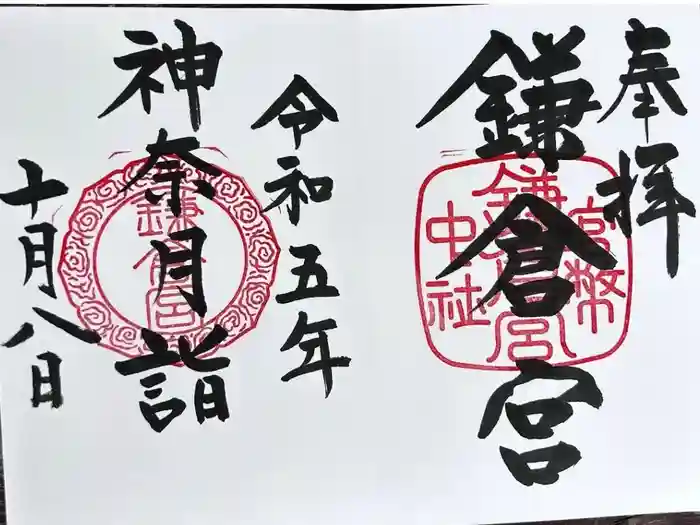 奉拝
鎌倉宮
官幣
鎌倉宮
中社
令和五年
神奈月詣
鎌倉宮
十月八日